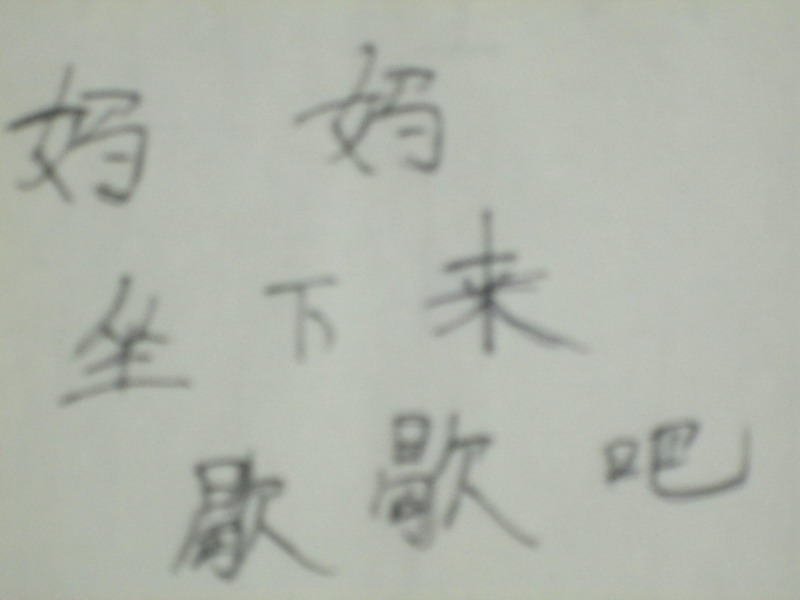 妈妈
坐下来
歇歇吧